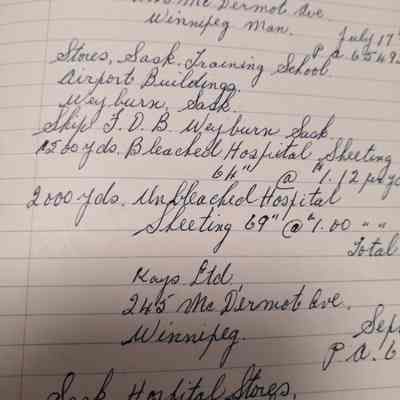 Mc Dermot Ave
Winnipeg Man.
July 17
P.A. 6549
Stores, Sask. Training School
Airport Buildings.
Weyburn, Sask.
Ship F.O.B. Weyburn Sask
yds. Bleached Hospital Sheeting
64" @ $1.12 per yd
2000 yds. Unbleached Hospital
Sheeting 69" @ $1.00 " "
Total
Kays Ltd,
245 Mc Dermot Ave.
Winnipeg.
Sep
P.A. 6
Sask Hospital Stores,